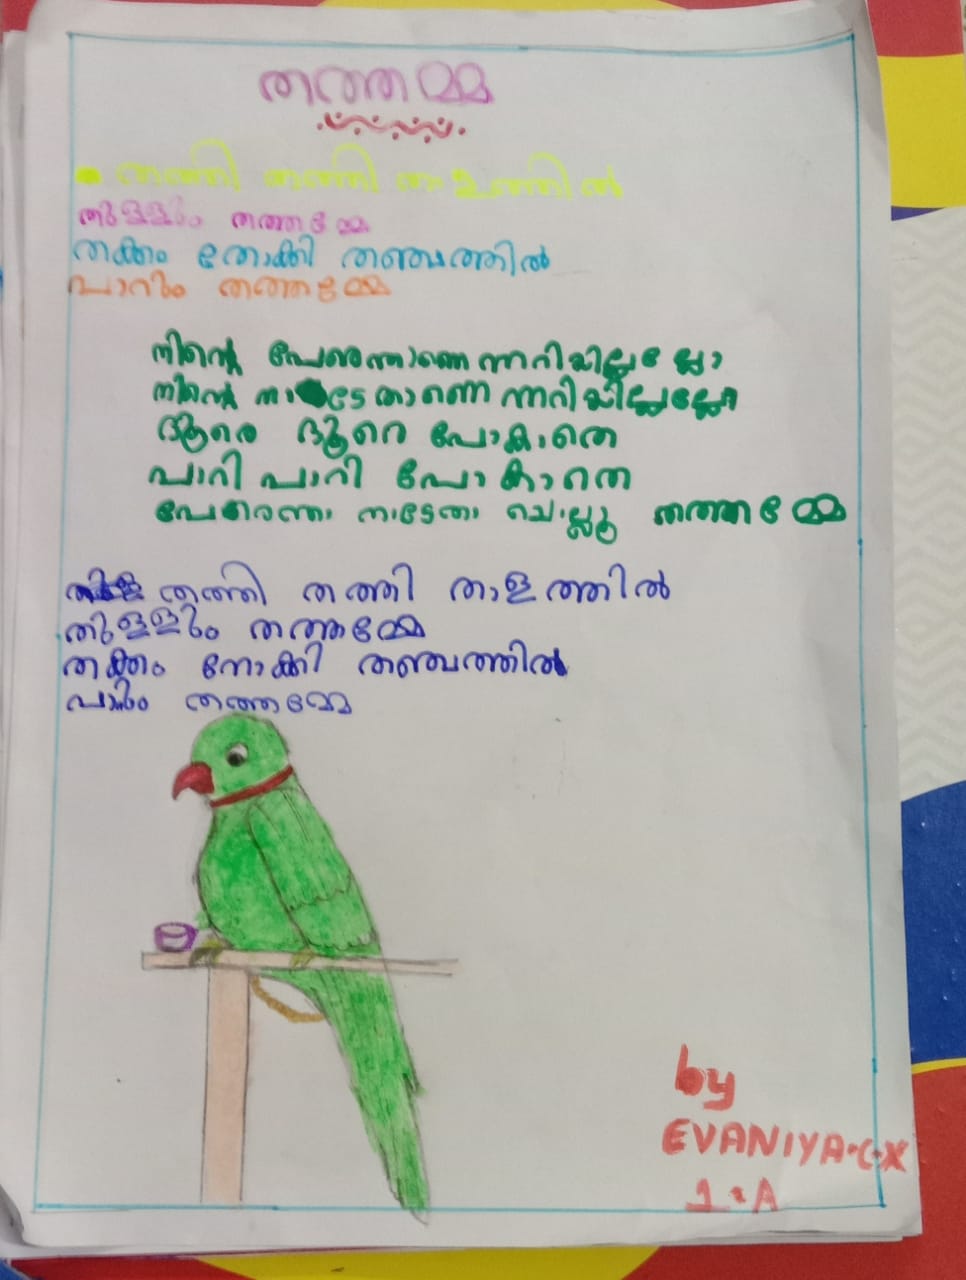 തത്തമ്മ
തത്തി തത്തി താളത്തിൽ
തുള്ളും തത്തമ്മേ
തക്കം നോക്കി തഞ്ചത്തിൽ
പാറും തത്തമ്മേ
നിന്റെ പേരെന്താണെന്നറിയില്ലല്ലോ
നിന്റെ നാടേതാണെന്നറിയില്ലല്ലോ
ദൂരെ ദൂരെ പോകാതെ
പാറി പാറി പോകാതെ
പേരെന്താ നാടേതാ ചൊല്ലൂ തത്തമ്മേ
തത്തി തത്തി താളത്തിൽ
തുള്ളും തത്തമ്മേ
തക്കം നോക്കി തഞ്ചത്തിൽ
പാറും തത്തമ്മേ
by
EVANIYA.C.X
1.A